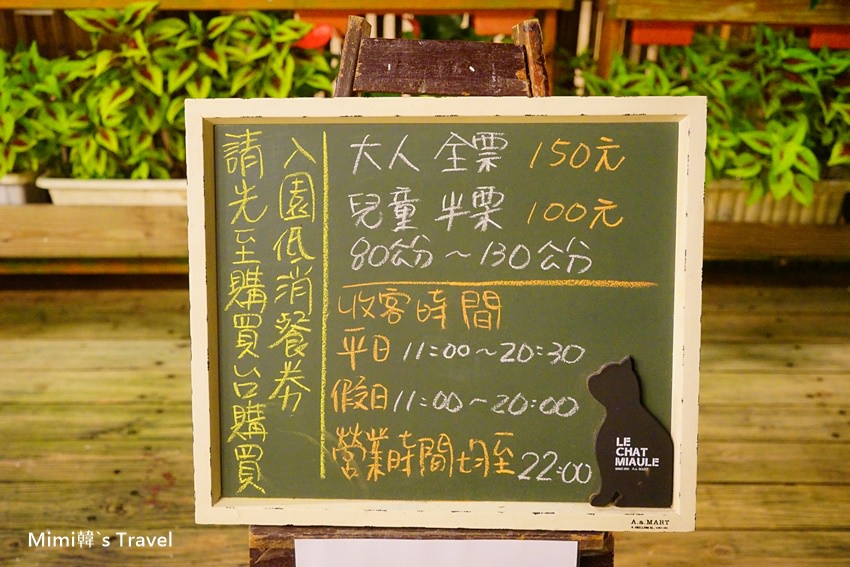 入園低消餐券
請先至購買台購買
大人 全票 150元
兒童 半票 100元
80公分~130公分
收客時間
平日 11:00~20:30
假日 11:00~20:00
營業時間均至 22:00
LE
CHAT
MIAULE
A.a.MART
Mimi韓`s Travel